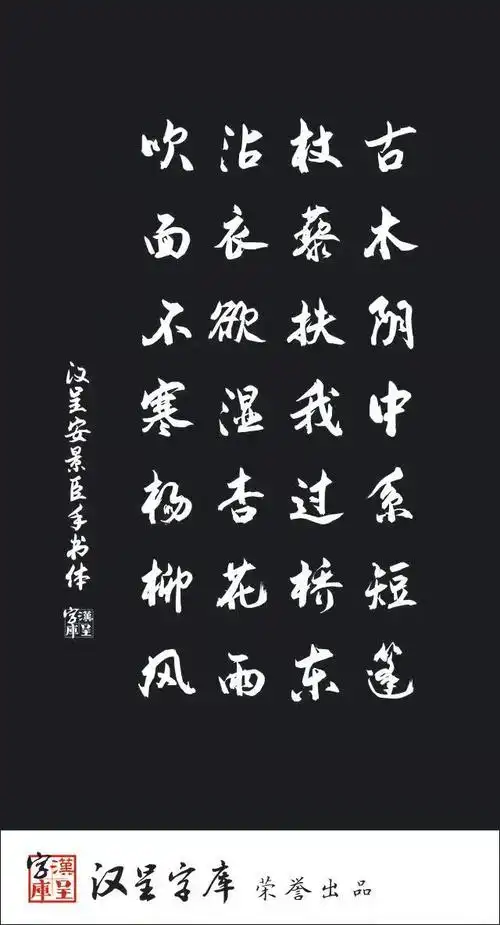 古木阴中系短篷
杖藜扶我过桥东
沾衣欲湿杏花雨
吹面不寒杨柳风
汉呈安景臣手书体
漢呈字库
漢呈字库
汉呈字库 荣誉出品